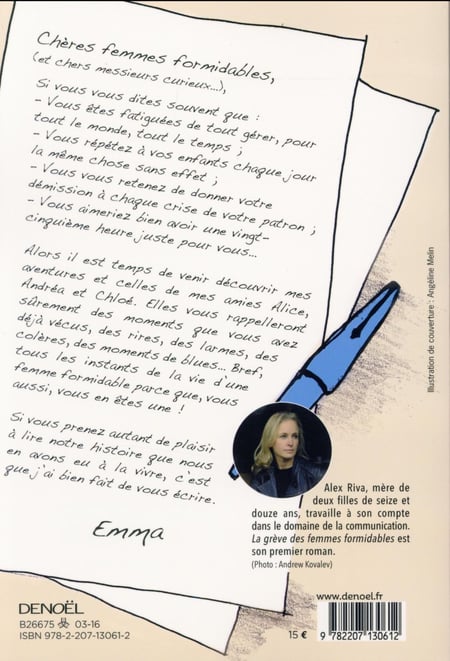 Chères femmes formidables,
(et chers messieurs curieux...),
Si vous vous dites souvent que :
- Vous êtes fatiguées de tout gérer, pour
tout le monde, tout le temps ;
- Vous répétez à vos enfants chaque jour
la même chose sans effet ;
- Vous vous retenez de donner votre
démission à chaque crise de votre patron ;
- Vous aimeriez bien avoir une vingt-
cinquième heure juste pour vous...
Alors il est temps de venir découvrir mes
aventures et celles de mes amies Alice,
Andréa et Chloé. Elles vous rappelleront
sûrement des moments que vous avez
déjà vécus, des rires, des larmes, des
colères, des moments de blues... Bref,
tous les instants de la vie d'une
femme formidable parce que, vous
aussi, vous en êtes une !
Si vous prenez autant de plaisir
à lire notre histoire que nous
en avons eu à la vivre, c'est
que j'ai bien fait de vous écrire.
Emma
Illustration de couverture : Angéline Melin
Alex Riva, mère de
deux filles de seize et
douze ans, travaille à son compte
dans le domaine de la communication.
La grève des femmes formidables est
son premier roman.
(Photo : Andrew Kovalev)
www.denoel.fr
DENOËL
B26675 03-16
ISBN 978-2-207-13061-2
15 €
9 782207 130612